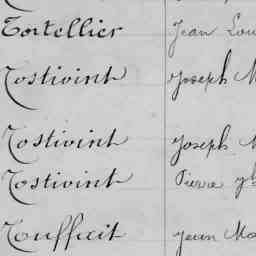 Tortellier Jean Lou
Tostivint Joseph M
Tostivint Joseph
Tostivint Pierre
Touffait Jean Ma